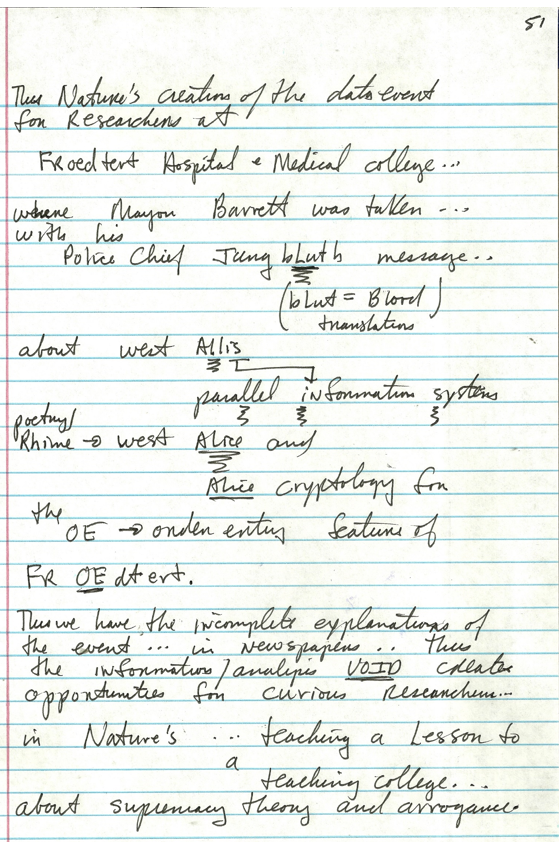 51
Thus Nature's creation of the data event
for Researchers at
Froedtert Hospital & Medical college...
where Mayor Barrett was taken ...
with his
Police Chief Jung bLuth message..
(bLut = Blood)
translation
about west Allis
parallel information systems
poetry/
Rhime → west Alice and
Alice cryptology for
the
OE → order entry feature of
FR OEdtert.
Thus we have the incomplete explanations of
the event ... in newspapers .. thus
the information/analysis VOID creates
opportunities for curious researchers...
in Nature's ... teaching a Lesson to
a
teaching college...
about supremacy theory and arrogance.